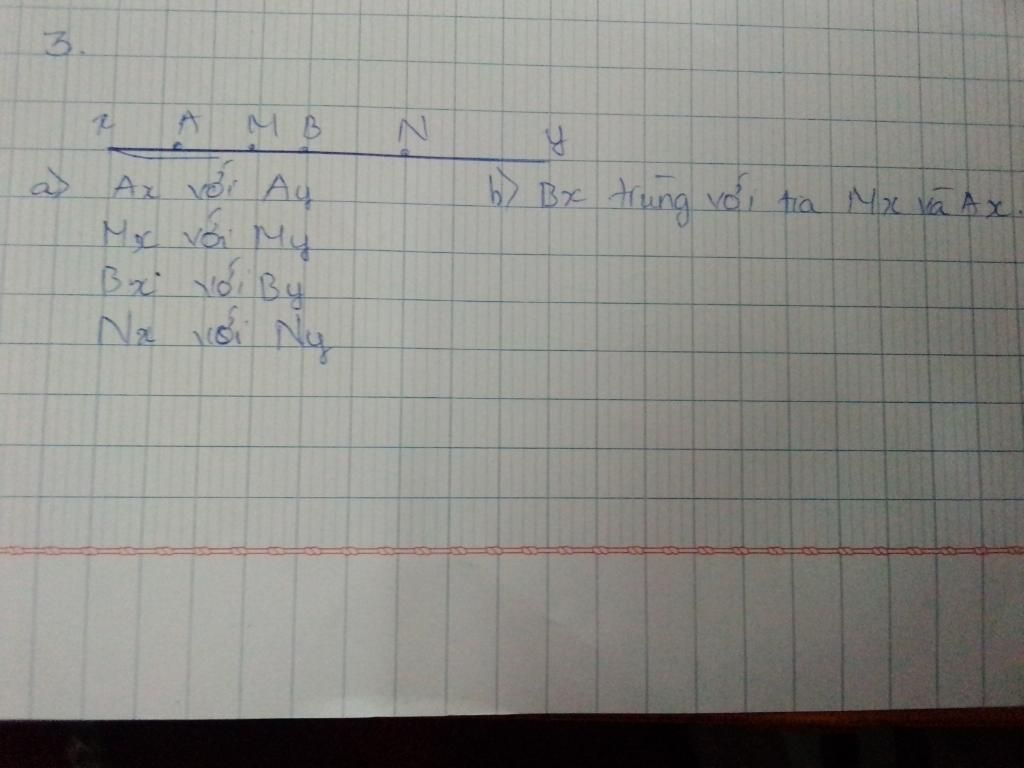 3.
x A M B N y
a) Ax với Ay
b) Bx trùng với tia Mx và Ax.
Mx với My
Bx với By
Nx với Ny